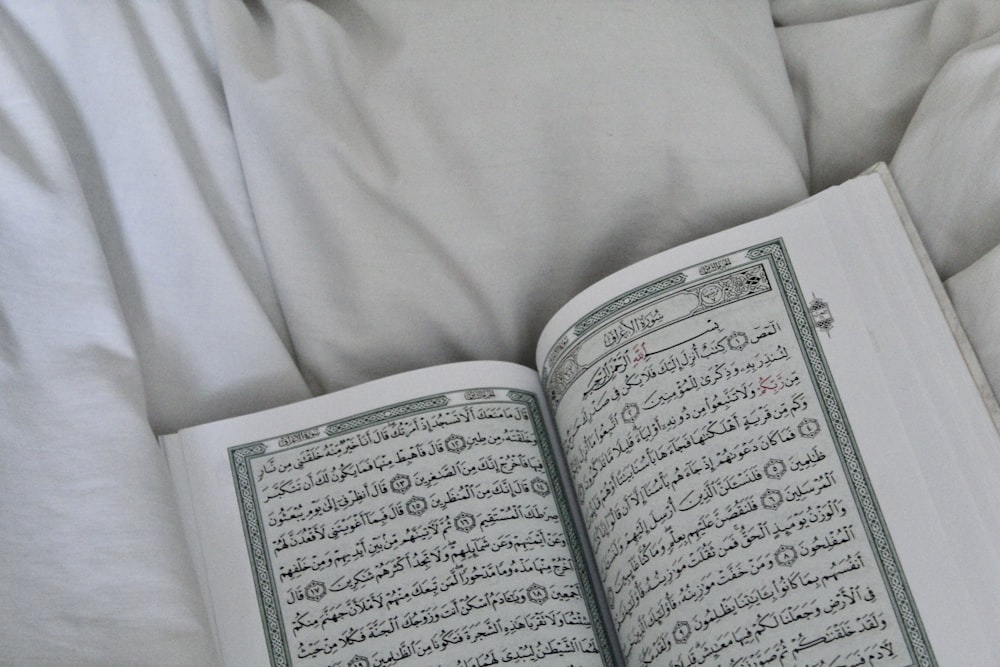 الجزء الثامن
سُورَةُ الأَعْرَافِ
بِسْمِ اللَّهِ الرَّحْمَٰنِ الرَّحِيمِ
الٓمٓصٓ ١ كِتَٰبٌ أُنزِلَ إِلَيْكَ فَلَا يَكُن فِى صَدْرِكَ
لِتُنذِرَ بِهِۦ وَذِكْرَىٰ لِلْمُؤْمِنِينَ ٢ ٱتَّبِعُوا۟ مَآ أُنزِلَ
مِّن رَّبِّكُمْ وَلَا تَتَّبِعُوا۟ مِن دُونِهِۦٓ أَوْلِيَآءَ قَلِيلًا مَّا تَذَكَّرُونَ
وَكَم مِّن قَرْيَةٍ أَهْلَكْنَٰهَا فَجَآءَهَا بَأْسُنَا بَيَٰتًا أَوْ هُمْ
٤ فَمَا كَانَ دَعْوَىٰهُمْ إِذْ جَآءَهُم بَأْسُنَآ إِلَّآ أَن قَالُوٓا۟
ظَٰلِمِينَ ٥ فَلَنَسْـَٔلَنَّ ٱلَّذِينَ أُرْسِلَ إِلَيْهِمْ وَلَنَسْـَٔلَنَّ
ٱلْمُرْسَلِينَ ٦ فَلَنَقُصَّنَّ عَلَيْهِم بِعِلْمٍ وَمَا كُنَّا غَآئِبِينَ
وَٱلْوَزْنُ يَوْمَئِذٍ ٱلْحَقُّ فَمَن ثَقُلَتْ مَوَٰزِينُهُۥ فَأُو۟لَٰٓئِكَ
ٱلْمُفْلِحُونَ ٨ وَمَنْ خَفَّتْ مَوَٰزِينُهُۥ فَأُو۟لَٰٓئِكَ ٱلَّذِينَ
أَنفُسَهُم بِمَا كَانُوا۟ بِـَٔايَٰتِنَا يَظْلِمُونَ ٩ وَلَقَدْ
فِى ٱلْأَرْضِ وَجَعَلْنَا لَكُمْ فِيهَا مَعَٰيِشَ قَلِيلًا
وَلَقَدْ خَلَقْنَٰكُمْ ثُمَّ صَوَّرْنَٰكُمْ
لِـَٔادَمَ
الجزء الثامن
سُورَةُ الأَعْرَافِ
قَالَ مَا مَنَعَكَ أَلَّا تَسْجُدَ إِذْ أَمَرْتُكَ قَالَ أَنَا۠ خَيْرٌ مِّنْهُ خَلَقْتَنِى مِن نَّارٍ
وَخَلَقْتَهُۥ مِن طِينٍ ١٢ قَالَ فَٱهْبِطْ مِنْهَا فَمَا يَكُونُ لَكَ أَن تَتَكَبَّرَ
فِيهَا فَٱخْرُجْ إِنَّكَ مِنَ ٱلصَّٰغِرِينَ ١٣ قَالَ أَنظِرْنِىٓ إِلَىٰ يَوْمِ يُبْعَثُونَ
١٤ قَالَ إِنَّكَ مِنَ ٱلْمُنظَرِينَ ١٥ قَالَ فَبِمَآ أَغْوَيْتَنِى لَأَقْعُدَنَّ لَهُمْ
صِرَٰطَكَ ٱلْمُسْتَقِيمَ ١٦ ثُمَّ لَـَٔاتِيَنَّهُم مِّنۢ بَيْنِ أَيْدِيهِمْ وَمِنْ خَلْفِهِمْ
وَعَنْ أَيْمَٰنِهِمْ وَعَن شَمَآئِلِهِمْ وَلَا تَجِدُ أَكْثَرَهُمْ شَٰكِرِينَ ١٧ قَالَ
ٱخْرُجْ مِنْهَا مَذْءُومًا مَّدْحُورًا لَّمَن تَبِعَكَ مِنْهُمْ لَأَمْلَأَنَّ جَهَنَّمَ مِنكُمْ
أَجْمَعِينَ ١٨ وَيَٰٓـَٔادَمُ ٱسْكُنْ أَنتَ وَزَوْجُكَ ٱلْجَنَّةَ فَكُلَا مِنْ حَيْثُ
شِئْتُمَا وَلَا تَقْرَبَا هَٰذِهِ ٱلشَّجَرَةَ فَتَكُونَا مِنَ ٱلظَّٰلِمِينَ
ٱلشَّيْطَٰنُ لِيُبْدِىَ لَهُمَا